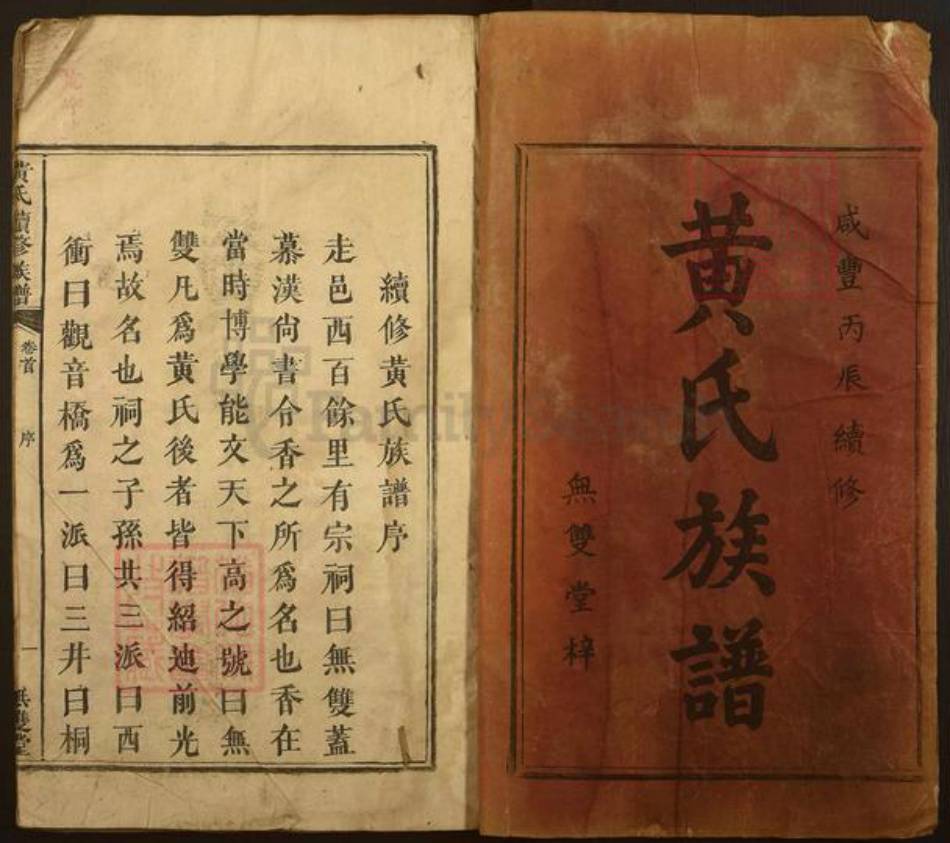 咸豐丙辰續修
黄氏族譜
無雙堂梓
續修黄氏族譜序
走邑西百餘里有宗祠曰無雙蓋
慕漢尙書令香之所爲名也香在
當時博學能文天下高之號曰無
雙凡爲黄氏後者皆得紹迪前光
焉故名也祠之子孫共三派曰西
衝曰觀音橋爲一派曰三井曰桐
黄氏續修族譜
卷首
序
一
無雙堂
FamilySearch